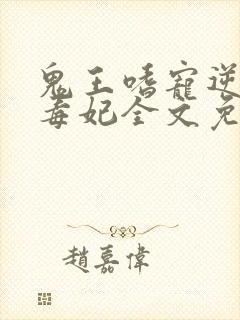 鬼王嗜寵逆
毒妃全文免
趙嘉偉